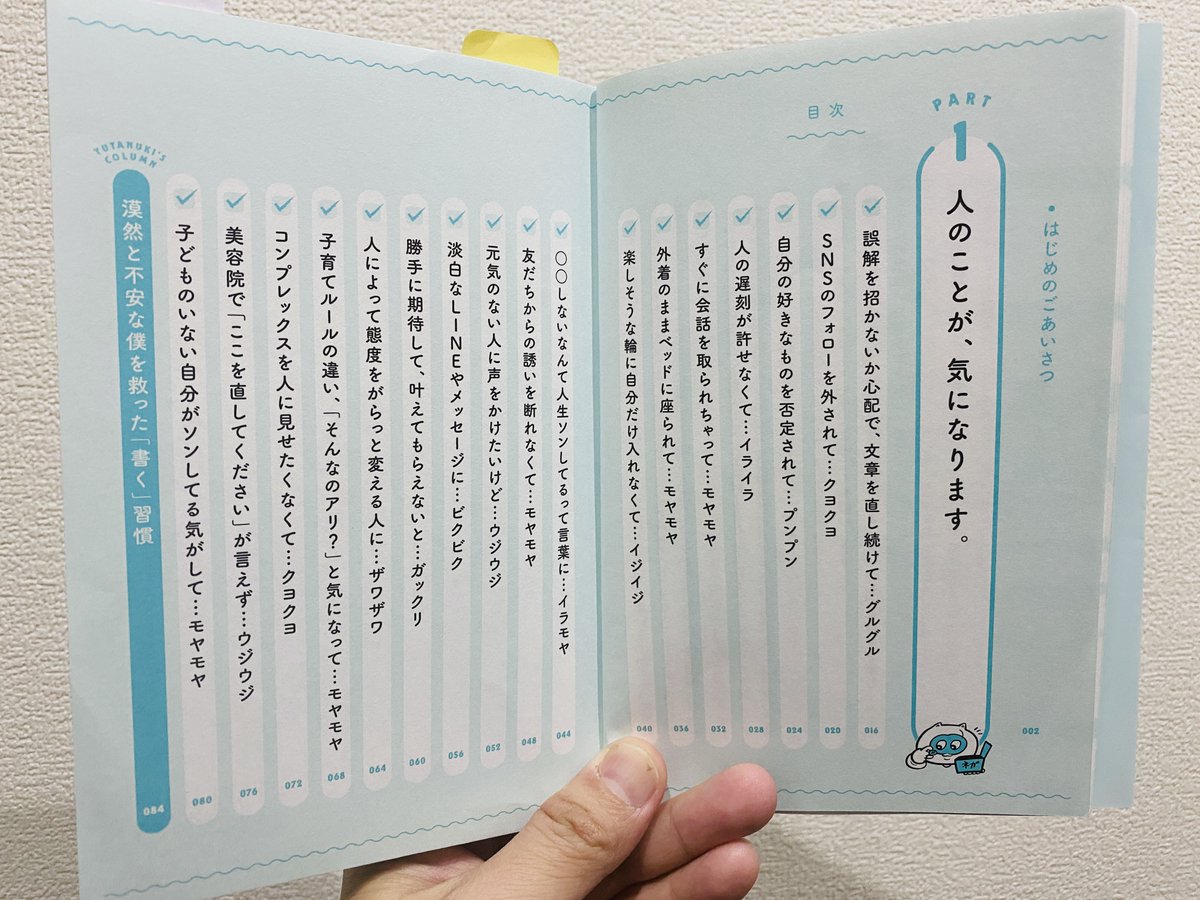 目次
・はじめのごあいさつ 002
PART
1
人のことが、気になります。
ネガ
誤解を招かないか心配で、文章を直し続けて…グルグル 016
SNSのフォローを外されて…クヨクヨ 020
自分の好きなものを否定されて…プンプン 024
人の遅刻が許せなくて…イライラ 028
すぐに会話を取られちゃって…モヤモヤ 032
外着のままベッドに座られて…モヤモヤ 036
楽しそうな輪に自分だけ入れなくて…イジイジ 040
〇〇しないなんて人生ソンしてるって言葉に…イラモヤ 044
友だちからの誘いを断れなくて…モヤモヤ 048
元気のない人に声をかけたいけど…ウジウジ 052
淡白なLINEやメッセージに…ビクビク 056
勝手に期待して、叶えてもらえないと…ガックリ 060
人によって態度をがらっと変える人に…ザワザワ 064
子育てルールの違い、「そんなのアリ?」と気になって…モヤモヤ 068
コンプレックスを人に見せたくなくて…クヨクヨ 072
美容院で「ここを直してください」が言えず…ウジウジ 076
子どものいない自分がソンしてる気がして…モヤモヤ 080
YUTANUKI'S
COLUMN
漠然と不安な僕を救った「書く」習慣 084